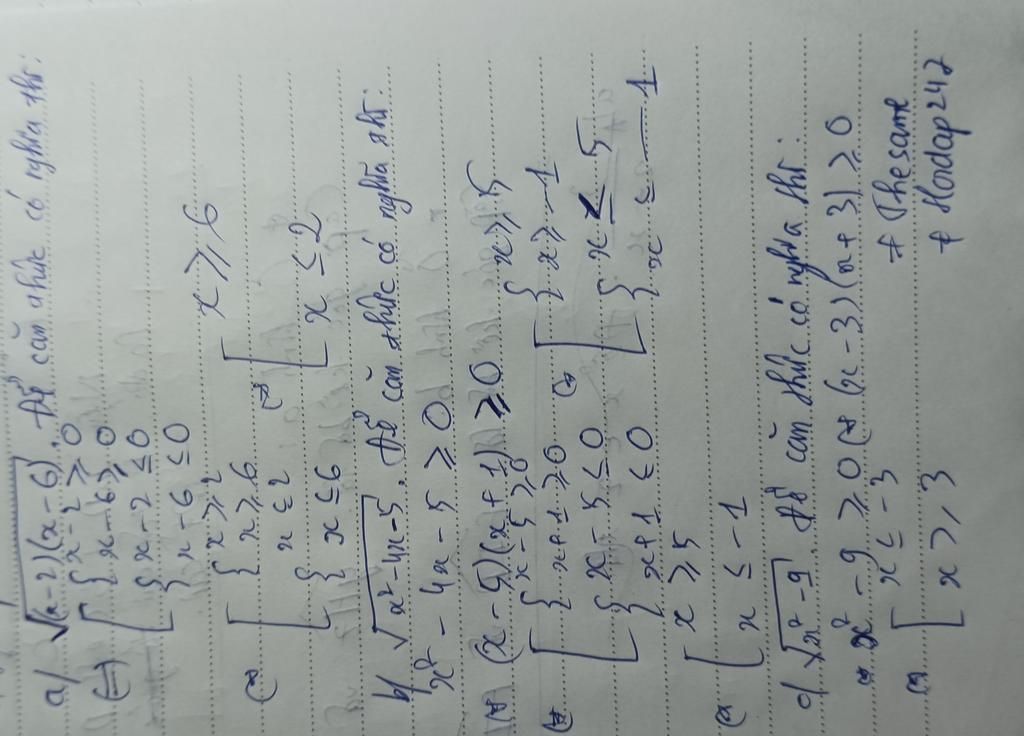 a/ √(x-2)(x-6). Để căn thức có nghĩa thì:
(=) [ { x-2 ≥ 0
{ x-6 ≥ 0
{ x-2 ≤ 0
{ x-6 ≤ 0
(=) [ { x ≥ 2
{ x ≥ 6
{ x ≤ 2
{ x ≤ 6
(=) [ x ≥ 6
x ≤ 2
b/ √x²-4x-5. Để căn thức có nghĩa thì:
x² - 4x - 5 ≥ 0
(=) (x-5)(x+1) ≥ 0
(=) [ { x-5 ≥ 0
{ x+1 ≥ 0
{ x-5 ≤ 0
{ x+1 ≤ 0
(=) [ { x ≥ 5
{ x ≥ -1
{ x ≤ 5
{ x ≤ -1
(=) [ x ≥ 5
x ≤ -1
c/ √x²-9. Để căn thức có nghĩa thì:
(=) x² - 9 ≥ 0 (=) (x-3)(x+3) ≥ 0
(=) [ x ≤ -3
x ≥ 3
+ Thesame
+ Hoidap247